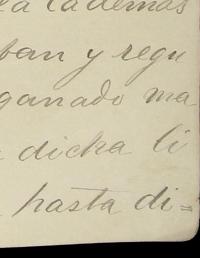 la cademas
ban y regu
ganado ma
dicha li
hasta di=